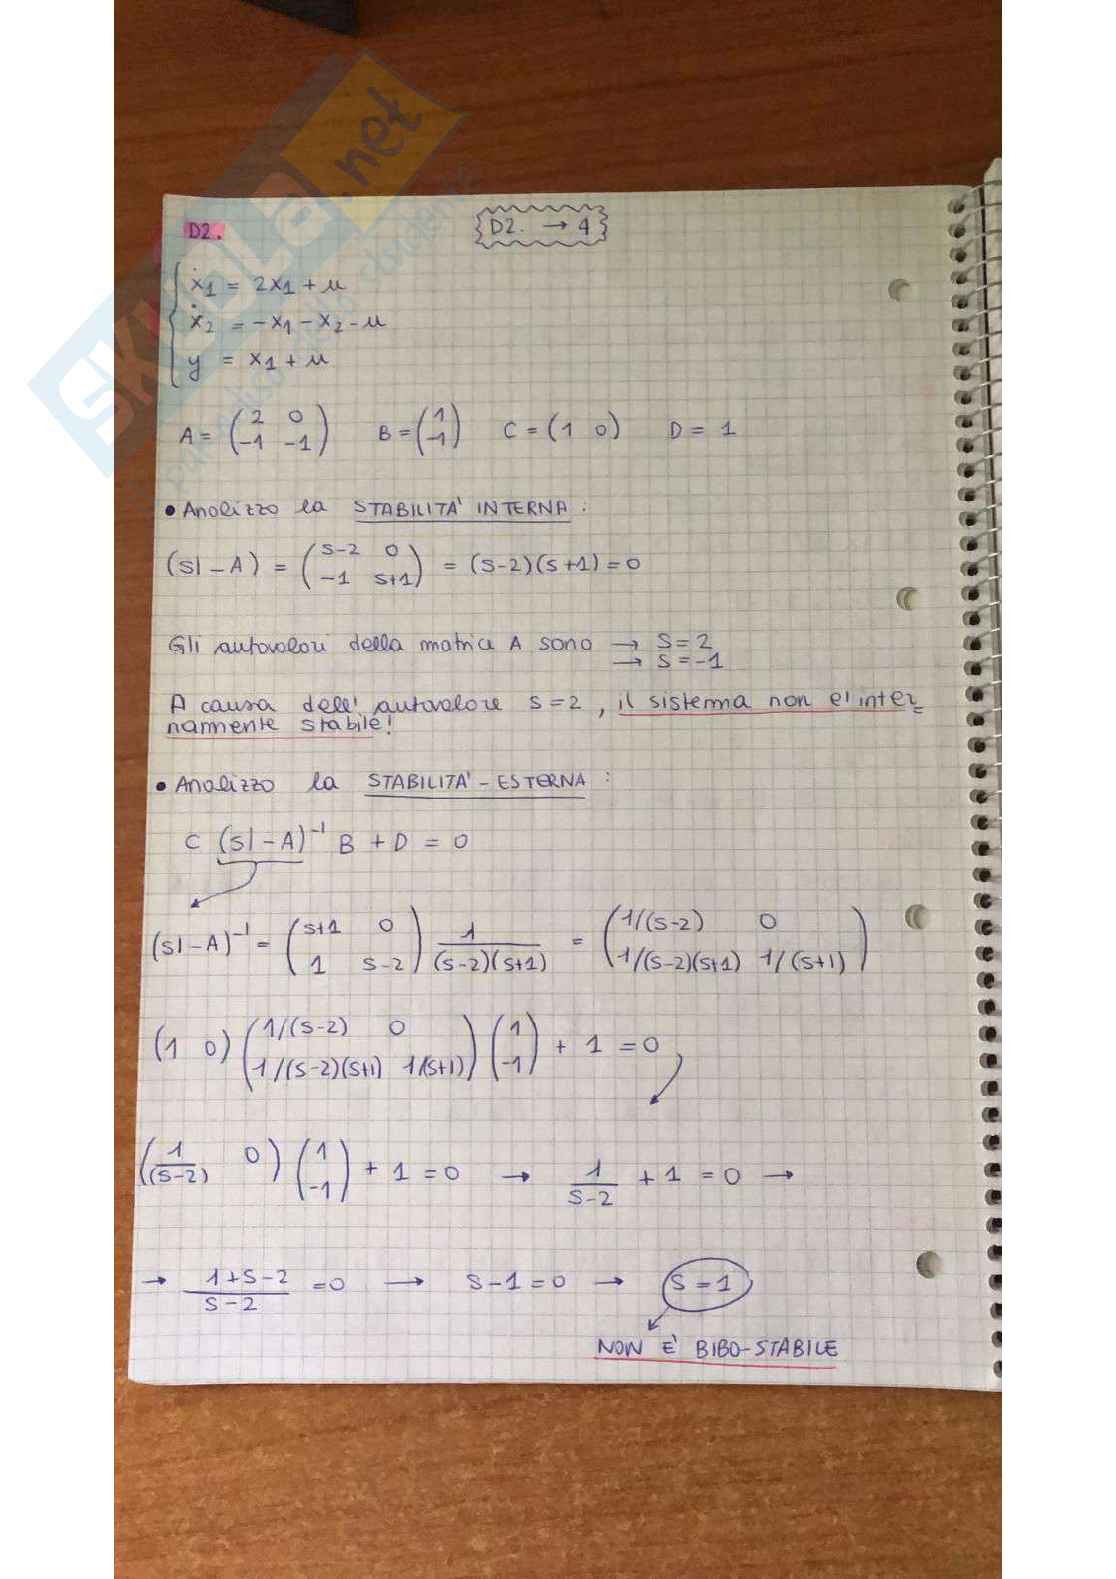 D2.
D2. → 4
ẋ1 = 2x1 + u
ẋ2 = -x1 - x2 - u
y = x1 + u
A = (2 0 / -1 -1) B = (1 / -1) C = (1 0) D = 1
• Analizzo la STABILITA' INTERNA :
(sI - A) = (s-2 0 / -1 s+1) = (s-2)(s+1) = 0
Gli autovalori della matrice A sono → s = 2
→ s = -1
A causa dell' autovalore s = 2, il sistema non e' inter
namente stabile!
• Analizzo la STABILITA' - ESTERNA :
C (sI - A)⁻¹ B + D = 0
(sI - A)⁻¹ = (s+1 0 / 1 s-2) 1/(s-2)(s+1) = (1/(s-2) 0 / 1/(s-2)(s+1) 1/(s+1))
(1 0) (1/(s-2) 0 / 1/(s-2)(s+1) 1/(s+1)) (1 / -1) + 1 = 0
(1/(s-2) 0) (1 / -1) + 1 = 0 → 1/s-2 + 1 = 0 →
→ 1+s-2/s-2 = 0 → s-1 = 0 → s = 1
NON E' BIBO-STABILE
SKUOLA.net